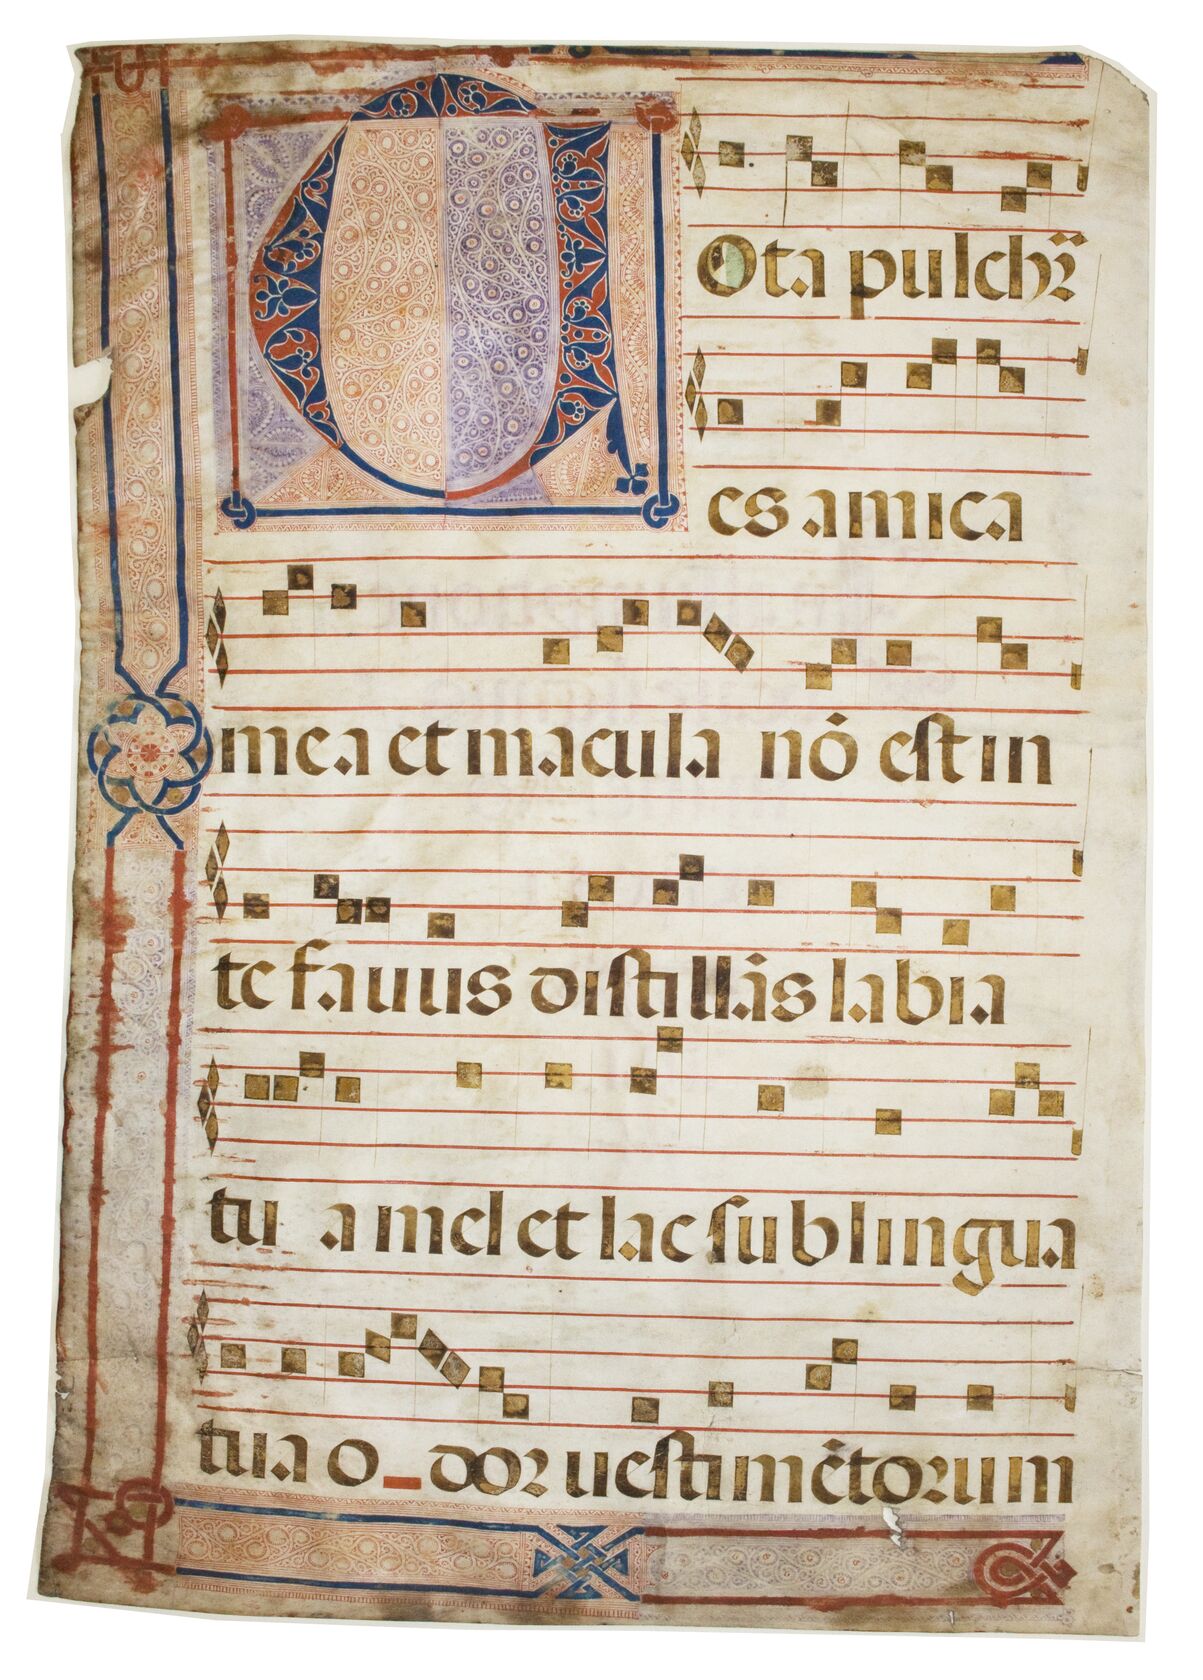 TOta pulchr̄
es amica
mea et macula nō est in
te favus distillās labia
tua mel et lac sub lingua
tua o_dor vestimētorum